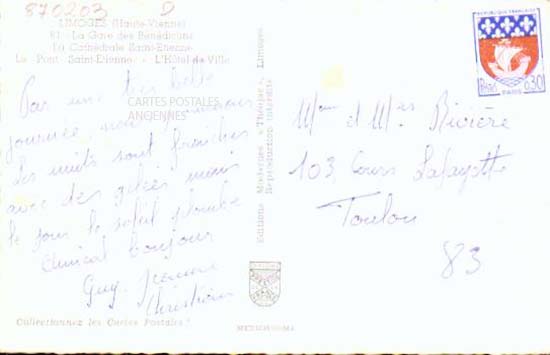 870203
LIMOGES (Haute-Vienne)
81 - La Gare des Bénédictins
La Cathédrale Saint-Etienne
Le Pont Saint-Etienne - L'Hôtel de Ville
CARTES POSTALES
ANCIENNES
Par une très belle
journée, nous
Les nuits sont fraîches
avec des gelées mais
le jour le soleil plombe
Amical bonjour
Guy Jeanne
Christian
Collectionnez les Cartes Postales !
Editions Modernes « Théojac », Limoges
Reproduction interdite
REPUBLIQUE FRANÇAISE
POSTES 0,30
PARIS
Mme et Mr Rivière
103 Cours Lafayette
Toulon
83